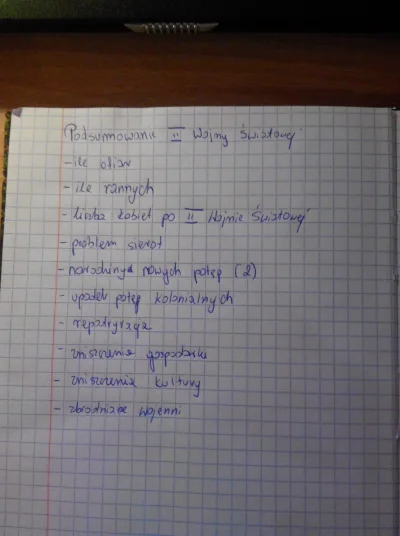 Podsumowanie II Wojny Światowej
- ile ofiar
- ile rannych
- liczba kobiet po II Wojnie Światowej
- problem sierot
- narodziny nowych potęg (2)
- upadek potęg kolonialnych
- repatryacja
- zniszczenia gospodarki
- zniszczenia kultury
- zbrodniarze wojenni